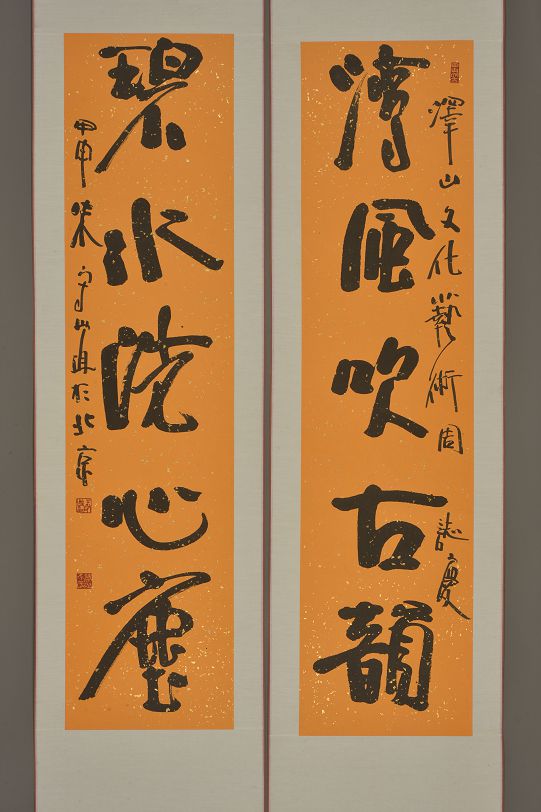 澤山文化藝術周 誌慶
清風吹古韻
碧水洗心塵
甲申朱守道於北京